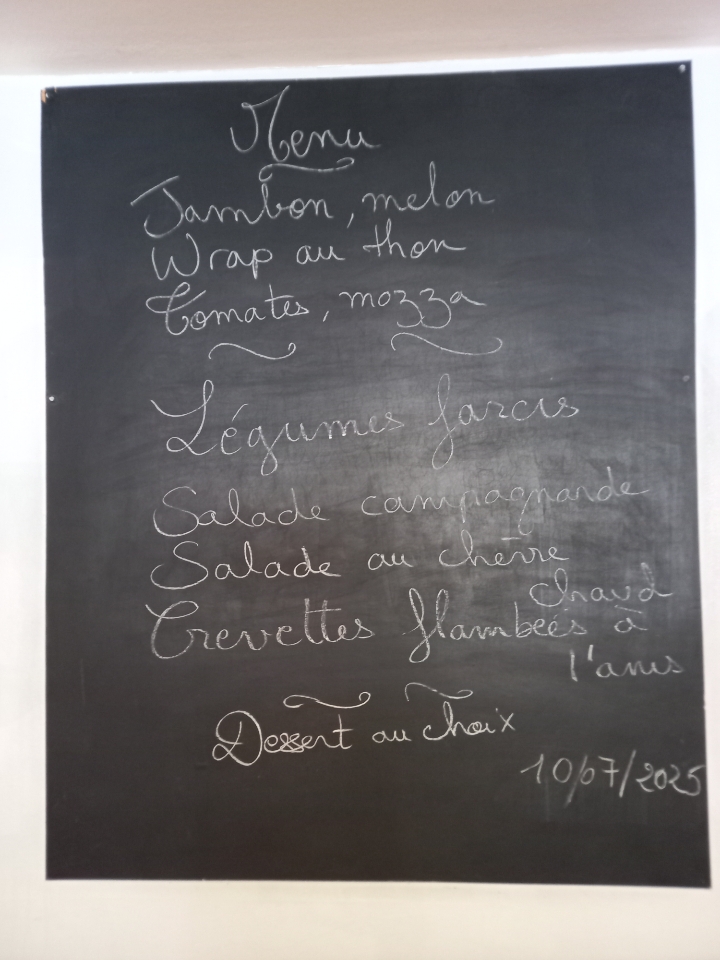 Menu
Jambon, melon
Wrap au thon
Tomates, mozza
Légumes farcis
Salade campagnarde
Salade au chèvre
chaud
Crevettes flambées à
l'anis
Dessert au choix
10/07/2025